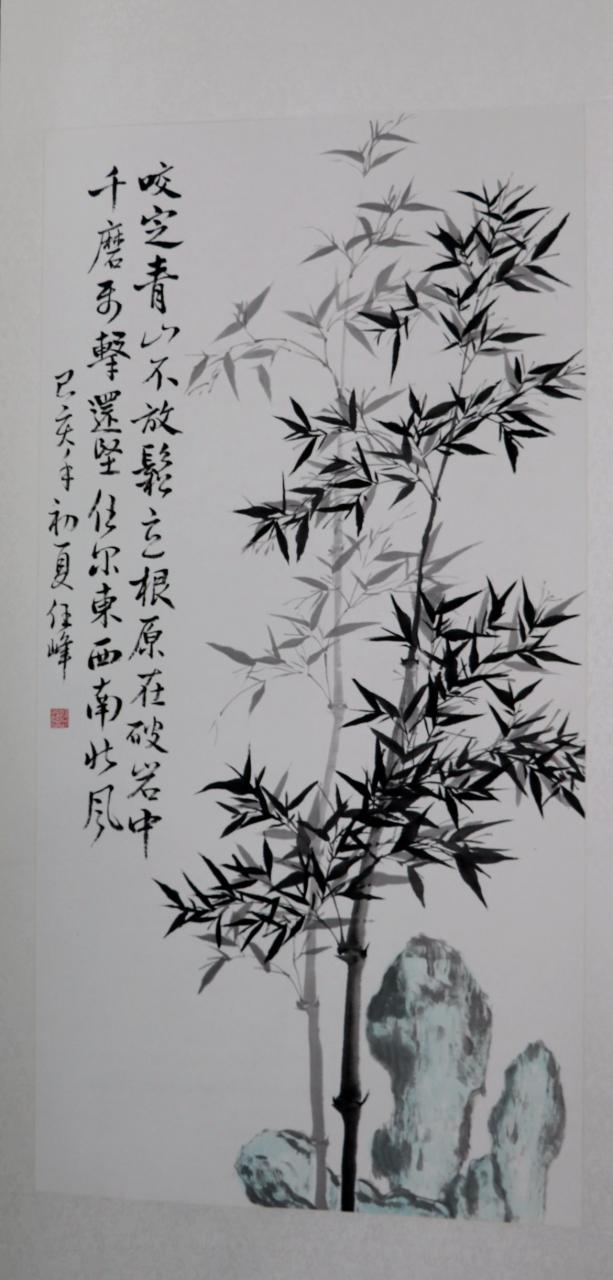 咬定青山不放鬆立根原在破岩中
千磨万擊還堅任尔東西南北风
己亥年初夏任峰